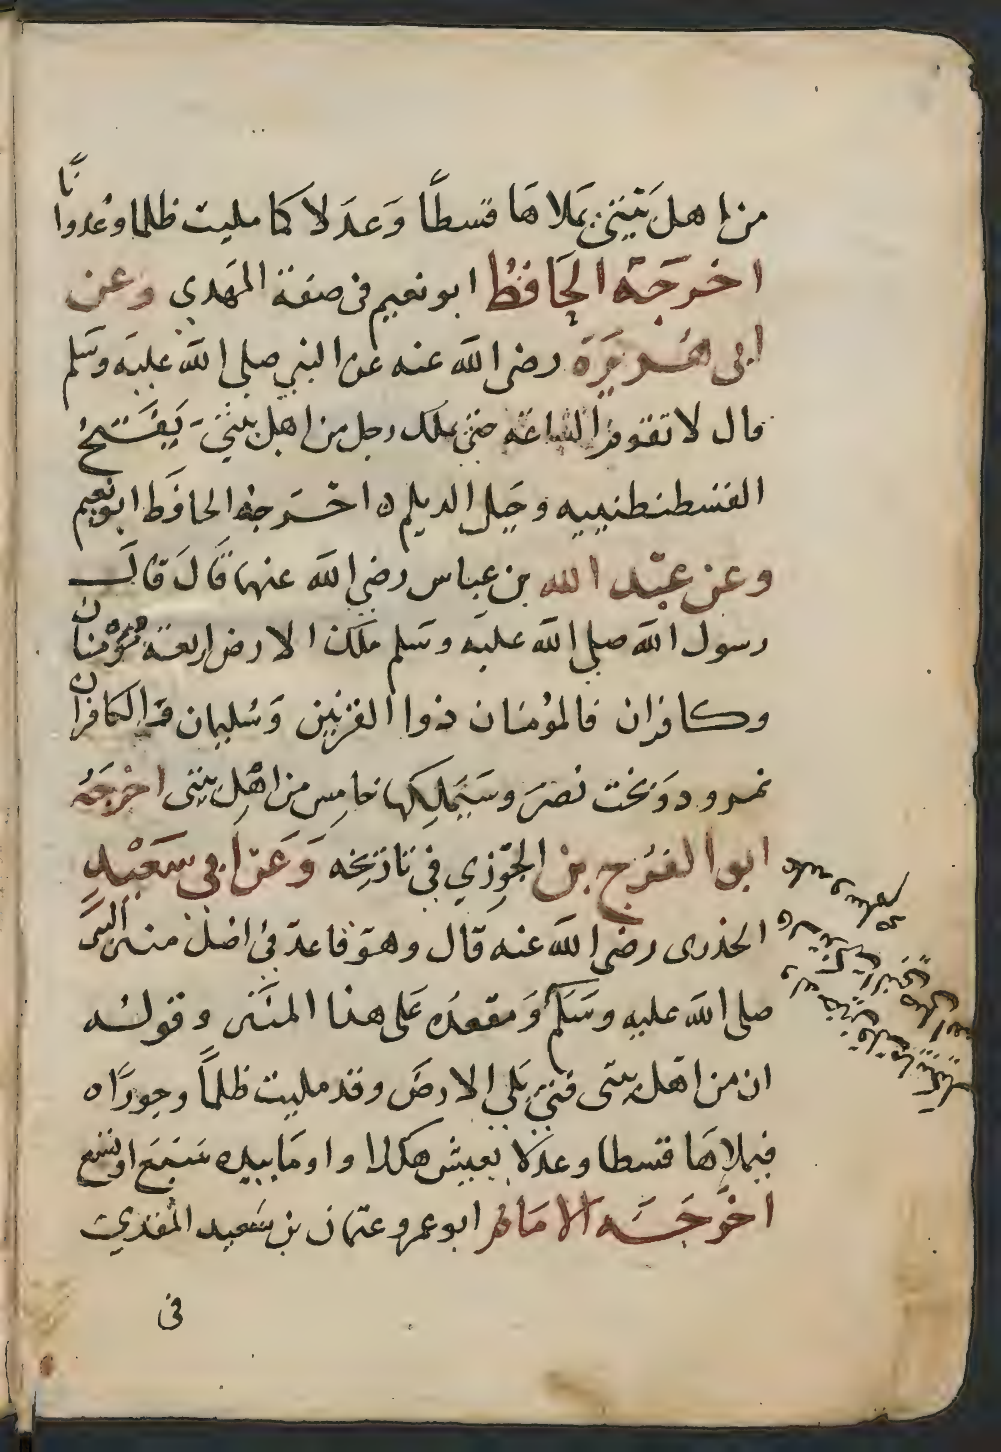 من اهل بيتي يملاها قسطاً وَعدَلا كما مليت ظلما وعُدوانًا
اخرجَهُ الحَافظُ ابو نعيم فى صفة المهَدي وعن
ابى هُريرَة رضى الله عنه عن النبي صلى الله عليه وسَلم
قال لا تقوم الساعَة حتى يملك رجل من اهل بيتي يَفتَحُ
القسطنطينييه وجَبل الديلم ه اخرجهُ الحافظ ابو نعيم
وعن عبْد الله بن عباس رضى الله عنهما قَالَ قالَ
رسول الله صلى الله عليه وسَلم ملَك الارض اربعَة مُؤمنان
وكافران فالمؤمنان ذوا القرنين وَسُليمان وَالكافران
نمرود وَبخت نصرَ وسَيَملِكها خامِس من اهْل بيتى اخرجَهُ
ابوا الفرَج بن الجَوزي في تاريخه وَعَن ابي سَعيْدٍ
الخدرى رضى الله عنه قال وهوَ قاعد فى اصْل منبر النبى
صلى الله عليه وسَلم وَمقعدُه عَلى هذا المنبَر وقولُه
ان من اهل بيتى فتى يَلي الارضَ وقد مليت ظلماً وجورًا ه
فيملاهَا قسطا وعدلا يعيش هكذا واومَا بيده سَبعَ او تسع
اخرَجَه الامَام ابو عمرو عثمان بن سَعيد المقري
فى